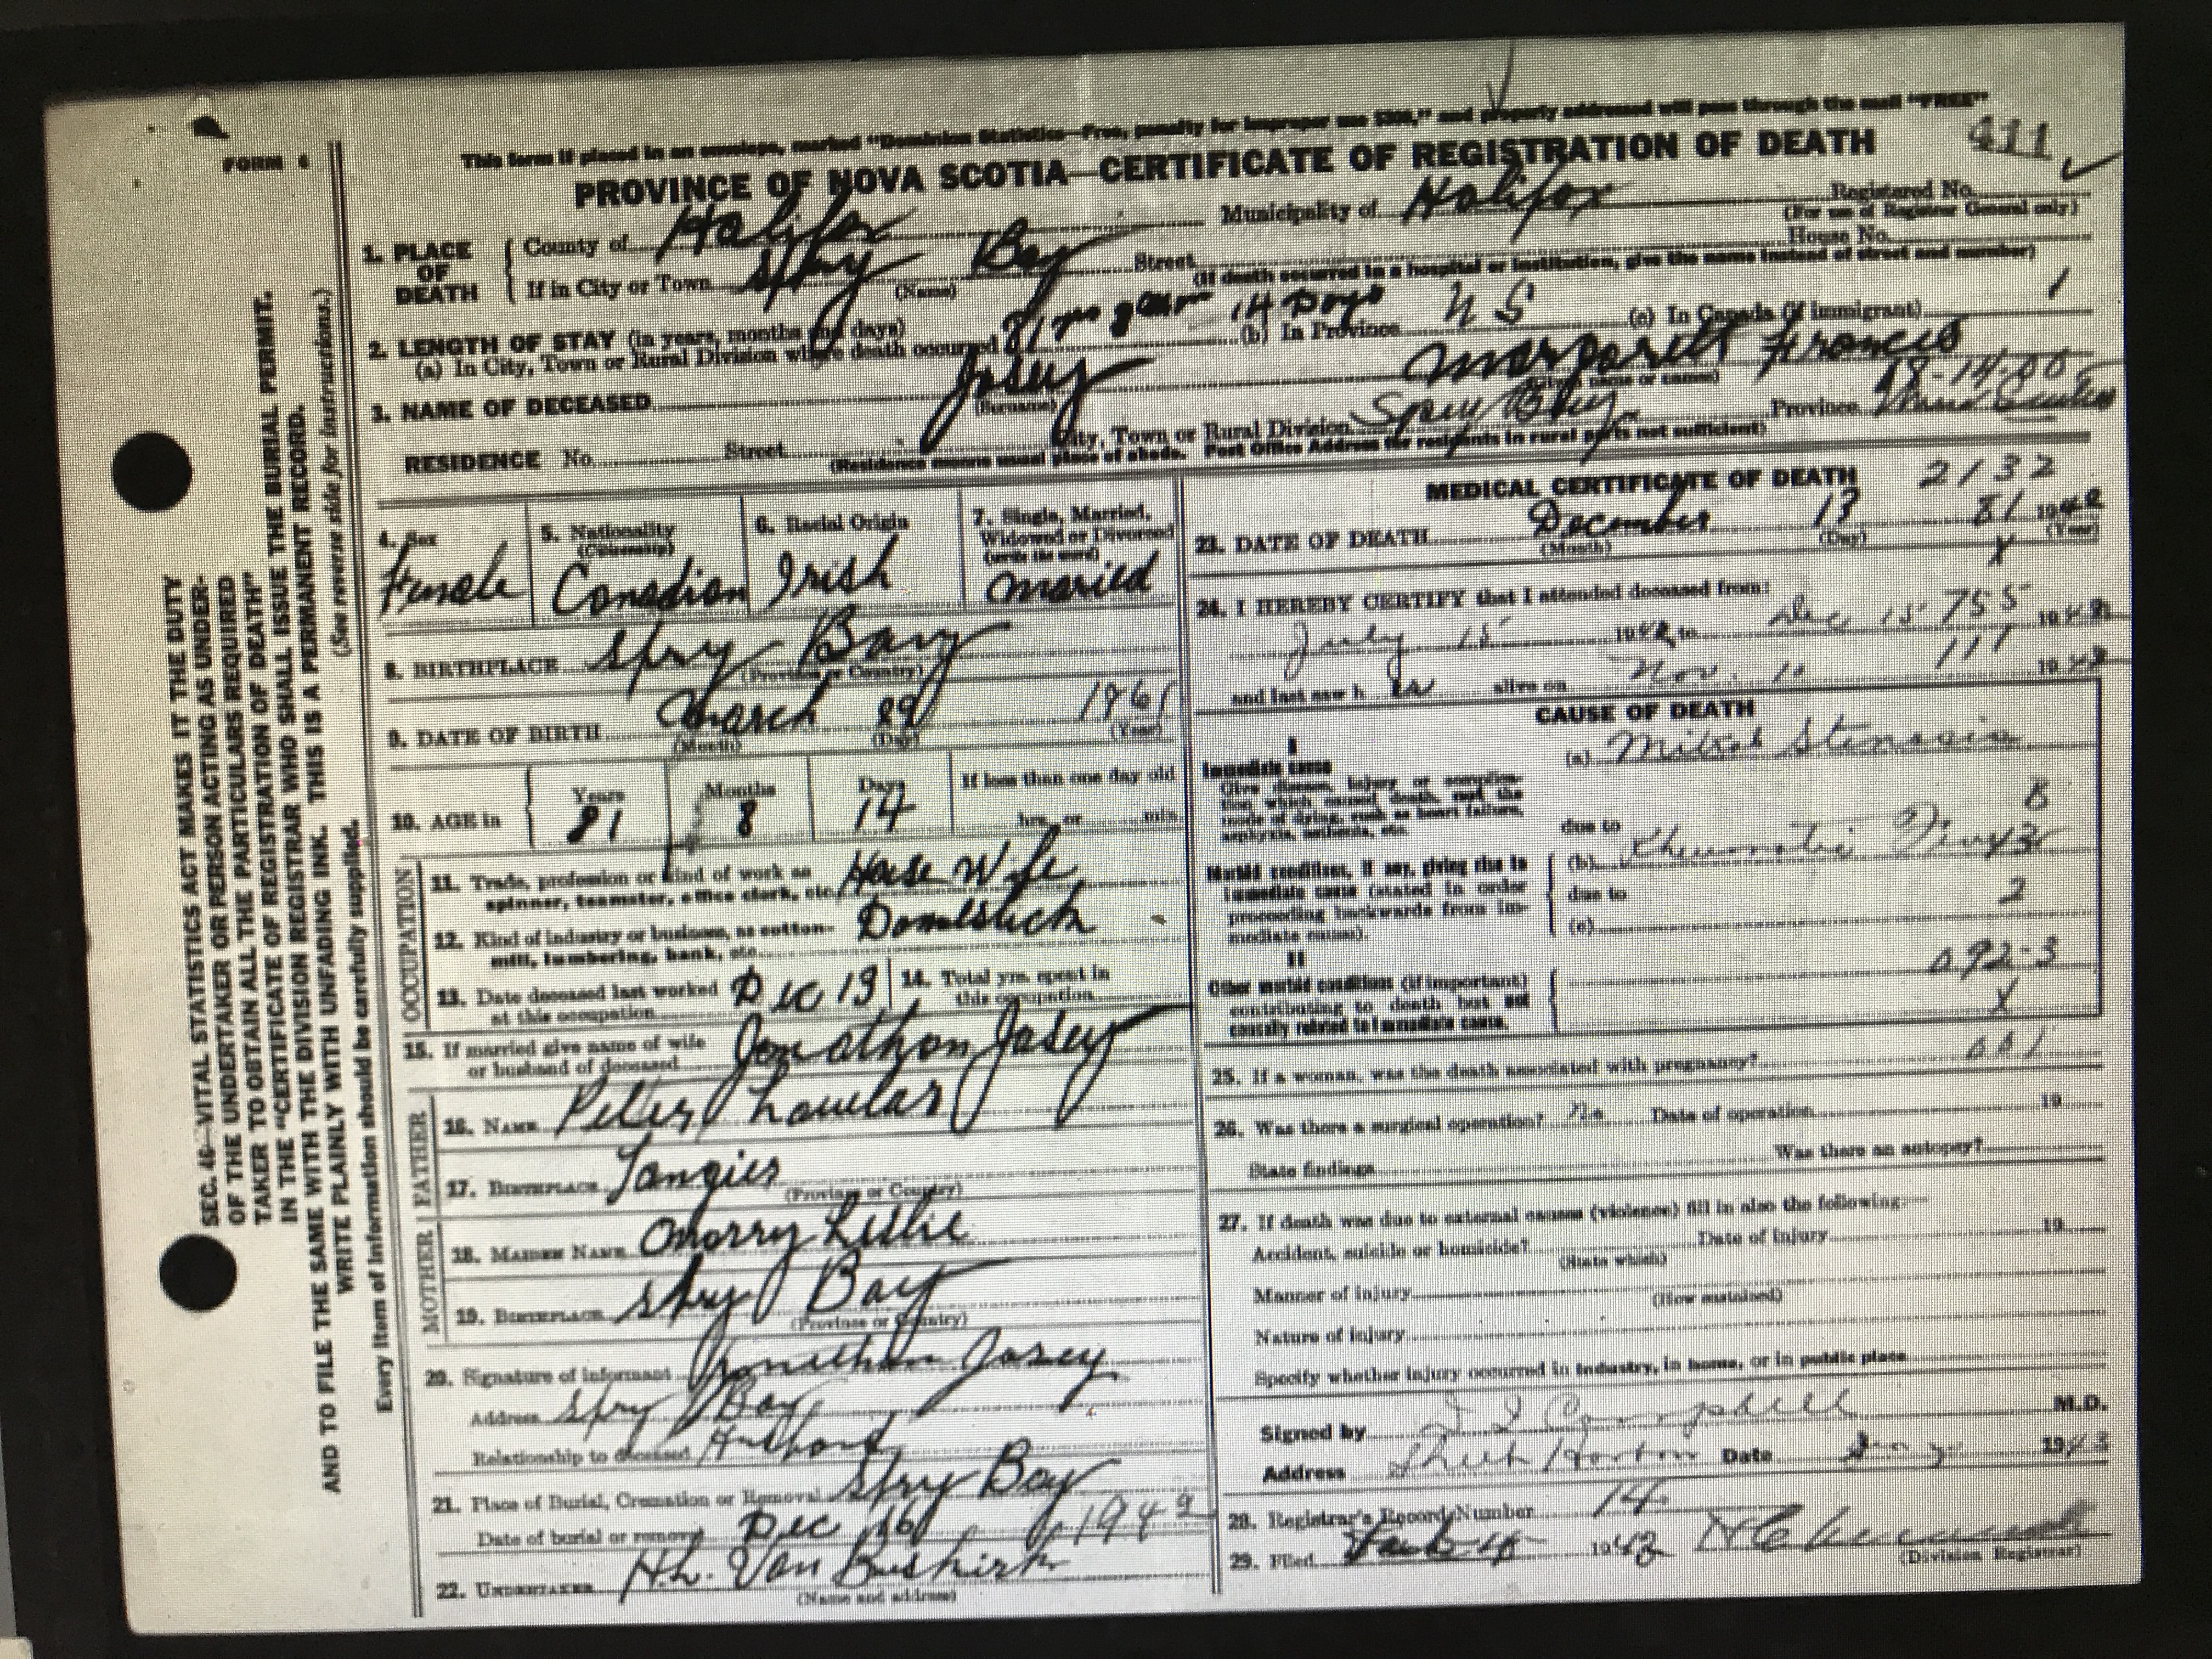 FORM 6
This form if placed in an envelope, marked "Dominion Statistics—Free, penalty for improper use $300," and properly addressed will pass through the mail "FREE"
PROVINCE OF NOVA SCOTIA—CERTIFICATE OF REGISTRATION OF DEATH
411
Registered No.
(For use of Registrar General only)
1. PLACE OF DEATH
County of Halifax Municipality of Halifax
If in City or Town Spry Bay Street House No.
(Name) (If death occurred in a hospital or institution, give the name instead of street and number)
2. LENGTH OF STAY (in years, months and days)
(a) In City, Town or Rural Division where death occurred 81 14 Days (b) In Province N S (c) In Canada (if immigrant) 1
3. NAME OF DECEASED Josey Margaret Francis
(Surname) (Given name or names)
18-14-00
RESIDENCE No. Street City, Town or Rural Division Spry Bay Province Nova Scotia
(Residence means usual place of abode. Post Office Address for residents in rural parts not sufficient)
4. Sex Female
5. Nationality (Citizenship) Canadian
6. Racial Origin Irish
7. Single, Married, Widowed or Divorced (write the word) Married
8. BIRTHPLACE Spry Bay
(Province or Country)
9. DATE OF BIRTH March 1961
(Month) (Day) (Year)
10. AGE in Years 81 Months 8 Days 14 If less than one day old hrs. or min.
OCCUPATION
11. Trade, profession or kind of work as House Wife
spinner, teamster, office clerk, etc.
12. Kind of industry or business, as cotton- Domestick
mill, lumbering, bank, etc.
13. Date deceased last worked Dec 13
at this occupation
14. Total yrs. spent in
this occupation
15. If married give name of wife Jonathon Josey
or husband of deceased
FATHER
16. NAME Peter
17. BIRTHPLACE Tangier
(Province or Country)
MOTHER
18. MAIDEN NAME Morry Leslie
19. BIRTHPLACE Spry Bay
(Province or Country)
20. Signature of informant Jonathan Josey
Address Spry Bay
Relationship to deceased Husband
21. Place of Burial, Cremation or Removal Spry Bay
Date of burial or removal Dec 16 1942
22. UNDERTAKER H.L. Van Buskirk
(Name and address)
MEDICAL CERTIFICATE OF DEATH 2132
23. DATE OF DEATH December 13 81 1942
(Month) (Day) (Year)
X
24. I HEREBY CERTIFY that I attended deceased from:
July 15 1942 to Dec 13 755 1942
and last saw h er alive on Nov. 11 111 1942
CAUSE OF DEATH
I
Immediate cause
Give disease, injury or complica-
tion which caused death, not the
mode of dying, such as heart failure,
asphyxia, asthenia, etc.
(a) Mitral Stenosis
due to 8
(b) Rheumatic
Morbid conditions, if any, giving rise to
immediate cause (stated in order
proceeding backwards from im-
mediate cause).
due to 2
(c)
II
Other morbid conditions (if important)
contributing to death but not
causally related to immediate cause.
092-3
X
25. If a woman, was the death associated with pregnancy? 001
26. Was there a surgical operation? No Date of operation 19
State findings Was there an autopsy?
27. If death was due to external causes (violence) fill in also the following:
Accident, suicide or homicide? Date of injury 19
(State which)
Manner of injury
(How sustained)
Nature of injury
Specify whether injury occurred in industry, in home, or in public place
Signed by Campbell M.D.
Address Sheet Harbor Date 1943
28. Registrar's Record Number 14
29. Filed 1943
(Division Registrar)
SEC. 46—VITAL STATISTICS ACT MAKES IT THE DUTY
OF THE UNDERTAKER OR PERSON ACTING AS UNDER-
TAKER TO OBTAIN ALL THE PARTICULARS REQUIRED
IN THE "CERTIFICATE OF REGISTRATION OF DEATH"
AND TO FILE THE SAME WITH THE DIVISION REGISTRAR WHO SHALL ISSUE THE BURIAL PERMIT.
WRITE PLAINLY WITH UNFADING INK. THIS IS A PERMANENT RECORD.
Every item of information should be carefully supplied. (See reverse side for instructions.)